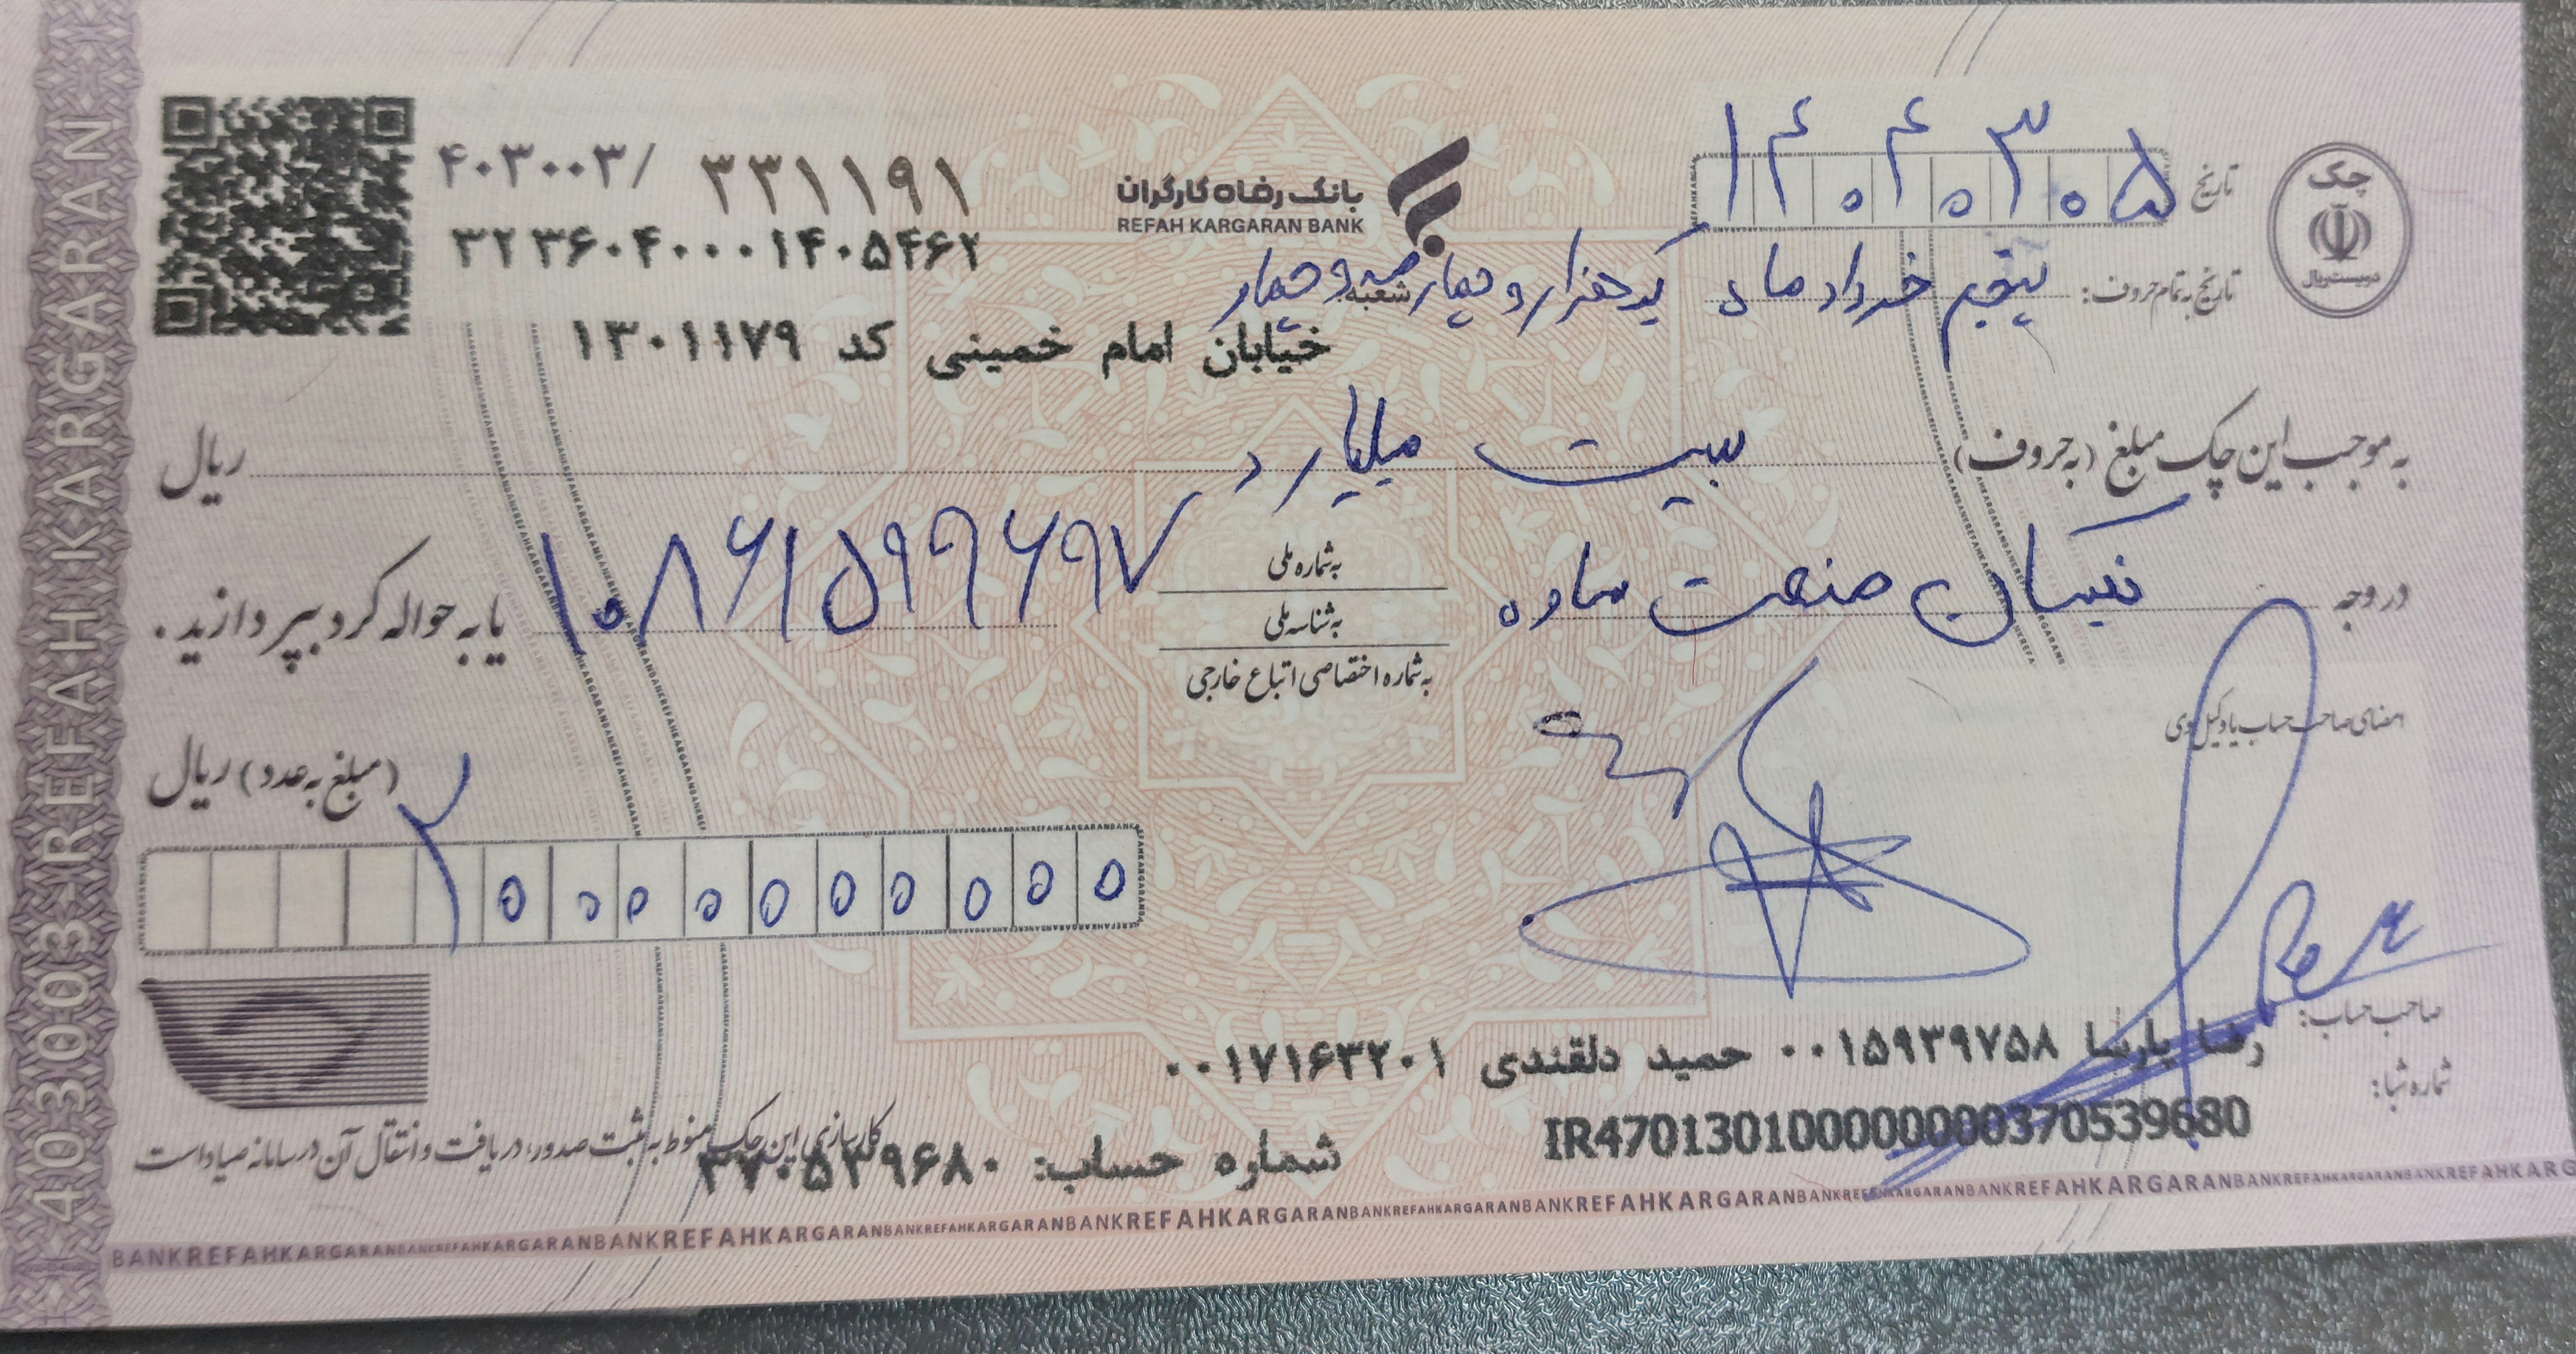 چک
دویست ریال
تاریخ ۱۴۰۴۰۳۰۵
تاریخ به تمام حروف: پنجم خرداد ماه یکهزار و چهارصد و چهار
بانک رفاه کارگران
REFAH KARGARAN BANK
شعبه
خیابان امام خمینی کد ۱۳۰۱۱۷۹
۴۰۳۰۰۳/ ۳۳۱۱۹۱
۳۲۳۶۰۴۰۰۰۱۴۰۵۴۶۲
به موجب این چک مبلغ (به حروف) بیست میلیارد ریال
در وجه نیسان صنعت ساوه
به شماره ملی
به شناسه ملی
به شماره اختصاصی اتباع خارجی
۱۰۸۶۱۵۹۹۶۹۷ یا به حواله کرد بپردازید.
امضای صاحب حساب یا وکیل وی
(مبلغ به عدد) ریال
۲۰۰۰۰۰۰۰۰۰۰
صاحب حساب: رضا پارسا ۰۰۱۵۹۳۹۷۵۸ حمید دلقندی ۰۰۱۷۱۶۳۲۰۱
شماره شبا: IR470130100000000370539680
شماره حساب: ۳۷۰۵۳۹۶۸۰
کارسازی این چک منوط به ثبت صدور، دریافت و انتقال آن در سامانه صیاد است
403003 REFAH KARGARAN
BANKREFAHKARGARANBANKREFAHKARGARANBANKREFAHKARGARANBANKREFAHKARGARANBANKREFAHKARGARANBANKREFAHKARGARAN